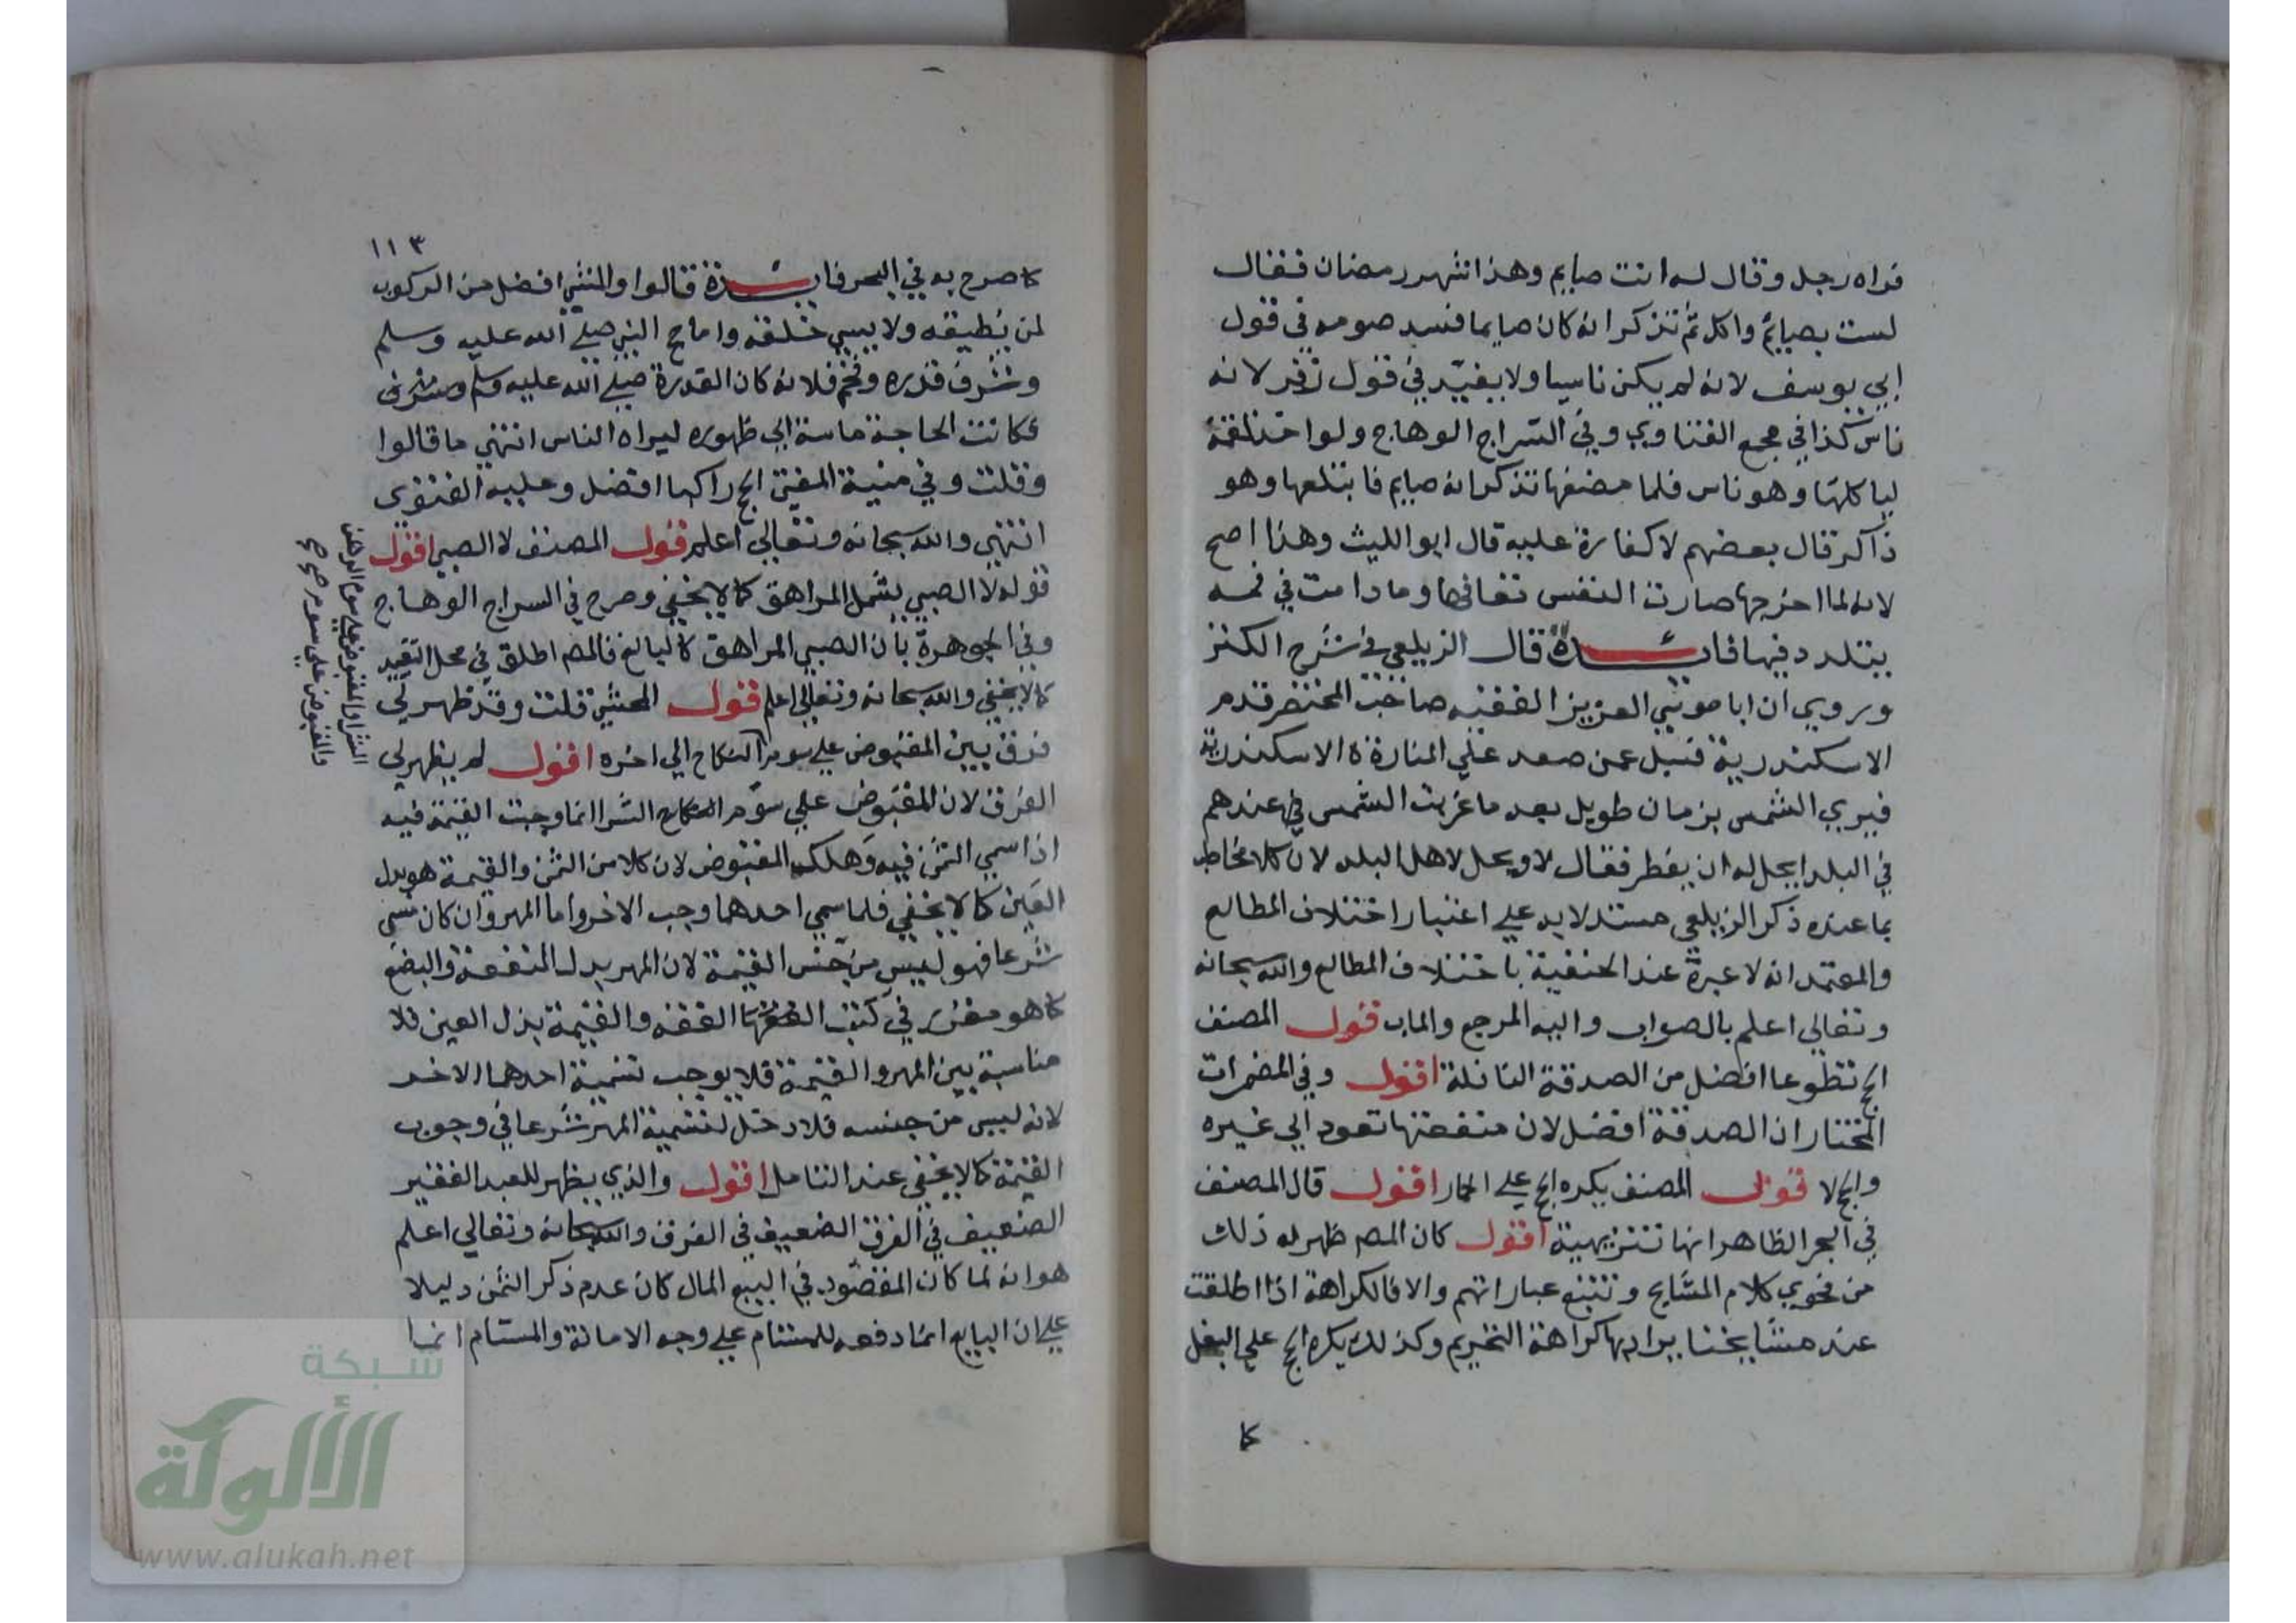 فراه رجل وقال له انت صايم وهذا شهر رمضان فقال
لست بصايم واكل ثم تذكر انه كان صايما فسد صومه في قول
ابي يوسف لانه لم يكن ناسيا ولا يفسد في قول زفر لانه
ناس كذا في مجمع الفتاوي وفي السراج الوهاج ولو اخذ لقمة
لياكلها وهو ناس فلما مضغها تذكر انه صايم فابتلعها وهو
ذاكر قال بعضهم لا كفارة عليه قال ابو الليث وهذا اصح
لانه لما اخرجها صارت النفس تعافها وما دامت في فمه
يتلذذ فيها فايدة قال الزيلعي في شرح الكنز
وروي ان ابا موسي العزيز الفقيه صاحب المختصر قدم
الاسكندرية فسيل عمن صعد علي المنارة الاسكندرية
فيري الشمس بزمان طويل بعد ما غربت الشمس عندهم
في البلد ايحل له ان يفطر فقال لا ويحل لاهل البلد لان كلا مخاطب
بما عنده ذكر الزيلعي مستدلا به علي اعتبار اختلاف المطالع
والمعتمد انه لا عبرة عند الحنفية باختلاف المطالع والله سبحانه
وتعالي اعلم بالصواب واليه المرجع والماب قول المصنف
الحج تطوعا افضل من الصدقة النافلة اقول وفي المضمرات
المختار ان الصدقة افضل لان منفعتها تعود الي غيره
والحج لا قول المصنف يكره الحج علي الحمار اقول قال المصنف
في البحر الظاهر انها تنزيهية اقول كان المص ظهر له ذلك
من فحوي كلام المشايخ وتتبع عباراتهم والا فالكراهة اذا اطلقت
عند مشايخنا يراد بها كراهة التحريم وكذلك يكره الحج علي البغل
كا
١١٣
كا صرح به في البحر فايدة قالوا والمشي افضل من الركوب
لمن يطيقه ولا يسيي خلقه واما حج النبي صلي الله عليه وسلم
وشرف قدره وفخم فلانه كان القدوة صلي الله عليه وسلم
فكانت الحاجة ماسة الي ظهوره ليراه الناس انتهي ما قالوا
وقلت وفي منية المفتي الحج راكبا افضل وعليه الفتوي
انتهي والله سبحانه وتعالي اعلم قول المصنف لا الصبي اقول
قوله لا الصبي يشمل المراهق كما لا يخفي وصرح في السراج الوهاج
وفي الجوهرة بان الصبي المراهق كالبالغ فالمص اطلق في محل التقييد
كما لا يخفي والله سبحانه وتعالي اعلم قول المحشي قلت وقد ظهر لي
فرق بين المقبوض علي سوم النكاح الي اخره اقول لم يظهر لي
الفرق لان المقبوض علي سوم الشرا انما وجبت القيمة فيه
اذا سمي الثمن فيه وهلك المقبوض لان كلا من الثمن والقيمة هو بدل
العين كما لا يخفي فلما سمي احدهما وجب الاخر واما المهر وان كان سمي
شرعا فهو ليس من جنس القيمة لان المهر بدل المنفعة والبضع
كا هو مقرر في كتب الفقه والقيمة بدل العين فلا
مناسبة بين المهر والقيمة فلا يوجب تسمية احدهما الاخر
لانه ليس من جنسه فلا دخل لتسمية المهر شرعا في وجوب
القيمة كما لا يخفي عند التامل اقول والذي يظهر للعبد الفقير
الضعيف في الفرق الضعيف في الفرق والله سبحانه وتعالي اعلم
هو انه لما كان المقصود في البيع المال كان عدم ذكر الثمن دليلا
علي ان البايع انما دفعه للمستام علي وجه الامانة والمستام انما
والمقبوض علي سوم
شبكة
الألوكة
www.alukah.net